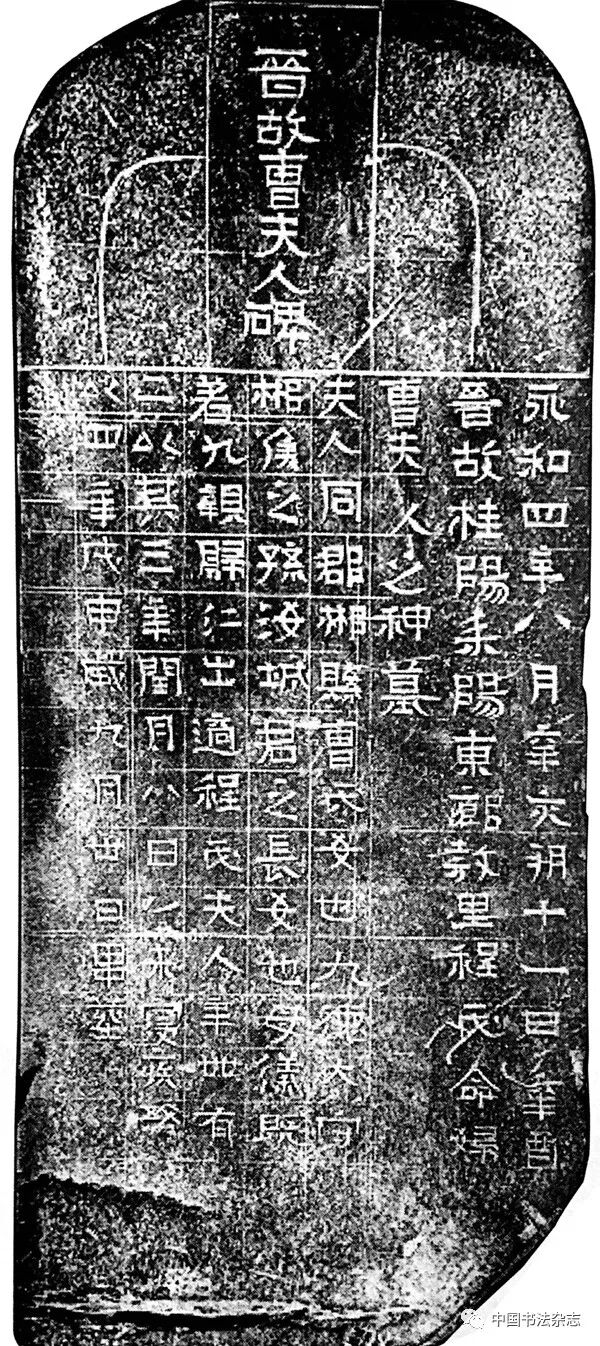 晉故曹夫人碑
永和四年八月辛亥朔十一日辛酉
晉故桂陽耒陽東里程氏命婦
曹夫人之神墓
夫人同郡郴縣曹氏女也九真太守
郴侯之孫汝城君之長女也女儀既
著九親歸仁出適程氏夫人年卅有
二以其三年閏月八日乙未寢疾終
以四年戊申歲九月卅日畢窆
中国书法杂志